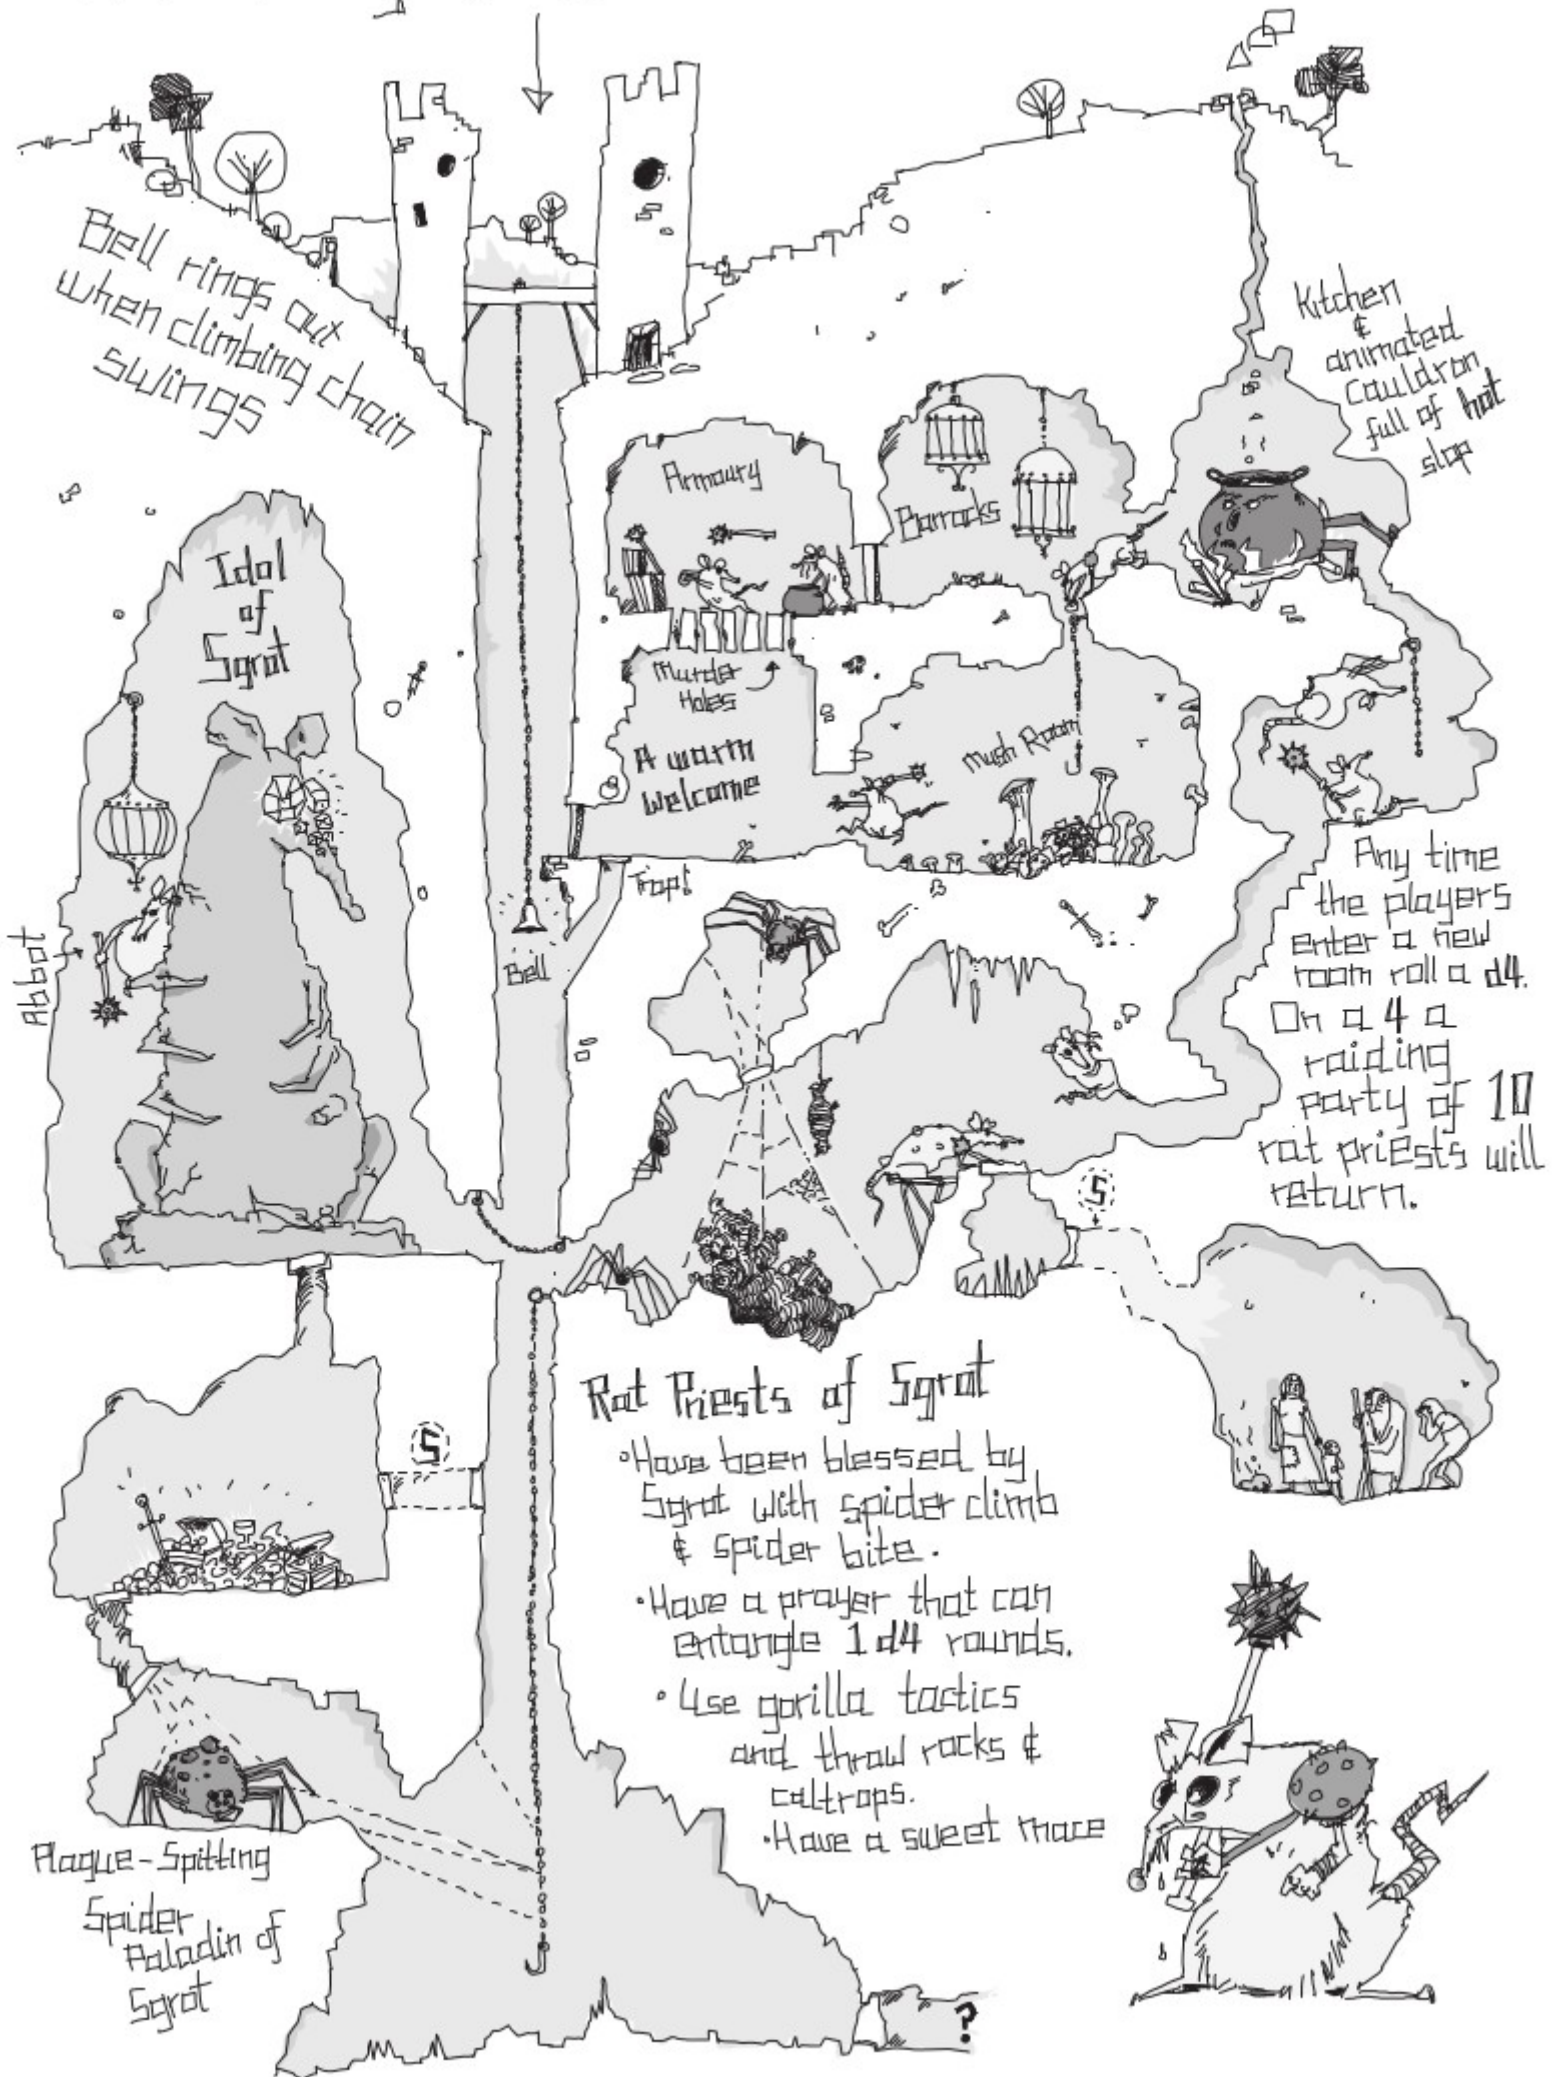 Bell rings out
when climbing chain
swings
Kitchen
&
animated
cauldron
full of hot
slop
Armoury
Barracks
Idol
of
Sgrot
Murder
Holes
A warm
welcome
Mush Room
Trap!
Bell
Abbot
Any time
the players
enter a new
room roll a d4.
On a 4 a
raiding
party of 10
rat priests will
return.
S
S
Rat Priests of Sgrot
•Have been blessed by
Sgrot with spider climb
& spider bite.
•Have a prayer that can
entangle 1d4 rounds.
•Use gorilla tactics
and throw rocks &
caltrops.
•Have a sweet mace
Plague-Spitting
Spider
Paladin of
Sgrot
?